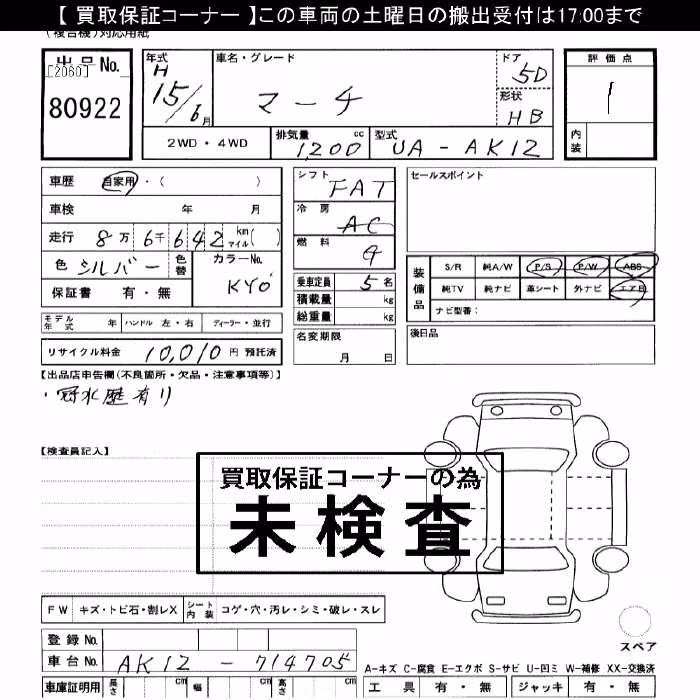 【 買取保証コーナー 】この車両の土曜日の搬出受付は17:00まで
(複合機)対応用紙
出品No.
[2060]
80922
年式 H 15/6月
車名・グレード マーチ
ドア 5D
形状 HB
評価点 1
内装
2WD・4WD
排気量 1,200 cc
型式 UA-AK12
車歴 自家用・( )
車検 年 月
走行 8万6千642 km マイル( )
色 シルバー 色替
カラーNo. KY0
保証書 有・無
シフト FAT
冷房 AC
燃料
乗車定員 5名
積載量 kg
総重量 kg
セールスポイント
装備品
S/R 純A/W P/S P/W ABS
純TV 純ナビ 革シート 外ナビ エアB
ナビ型番:
モデル年式 年 ハンドル 左・右 ディーラー・並行
リサイクル料金 10,010円 預託済
名変期限 月 日
後日品
【出品店申告欄(不良箇所・欠品・注意事項等)】
・冠水歴有り
【検査員記入】
買取保証コーナーの為
未検査
FW キズ・トビ石・割レX シート内装 コゲ・穴・汚レ・シミ・破レ・スレ
スペア
登録No.
車台No. AK12-714705
A-キズ C-腐食 E-エクボ S-サビ U-凹ミ W-補修 XX-交換済
車庫証明用 長さ cm 幅 cm 高さ cm
工具 有・無 ジャッキ 有・無